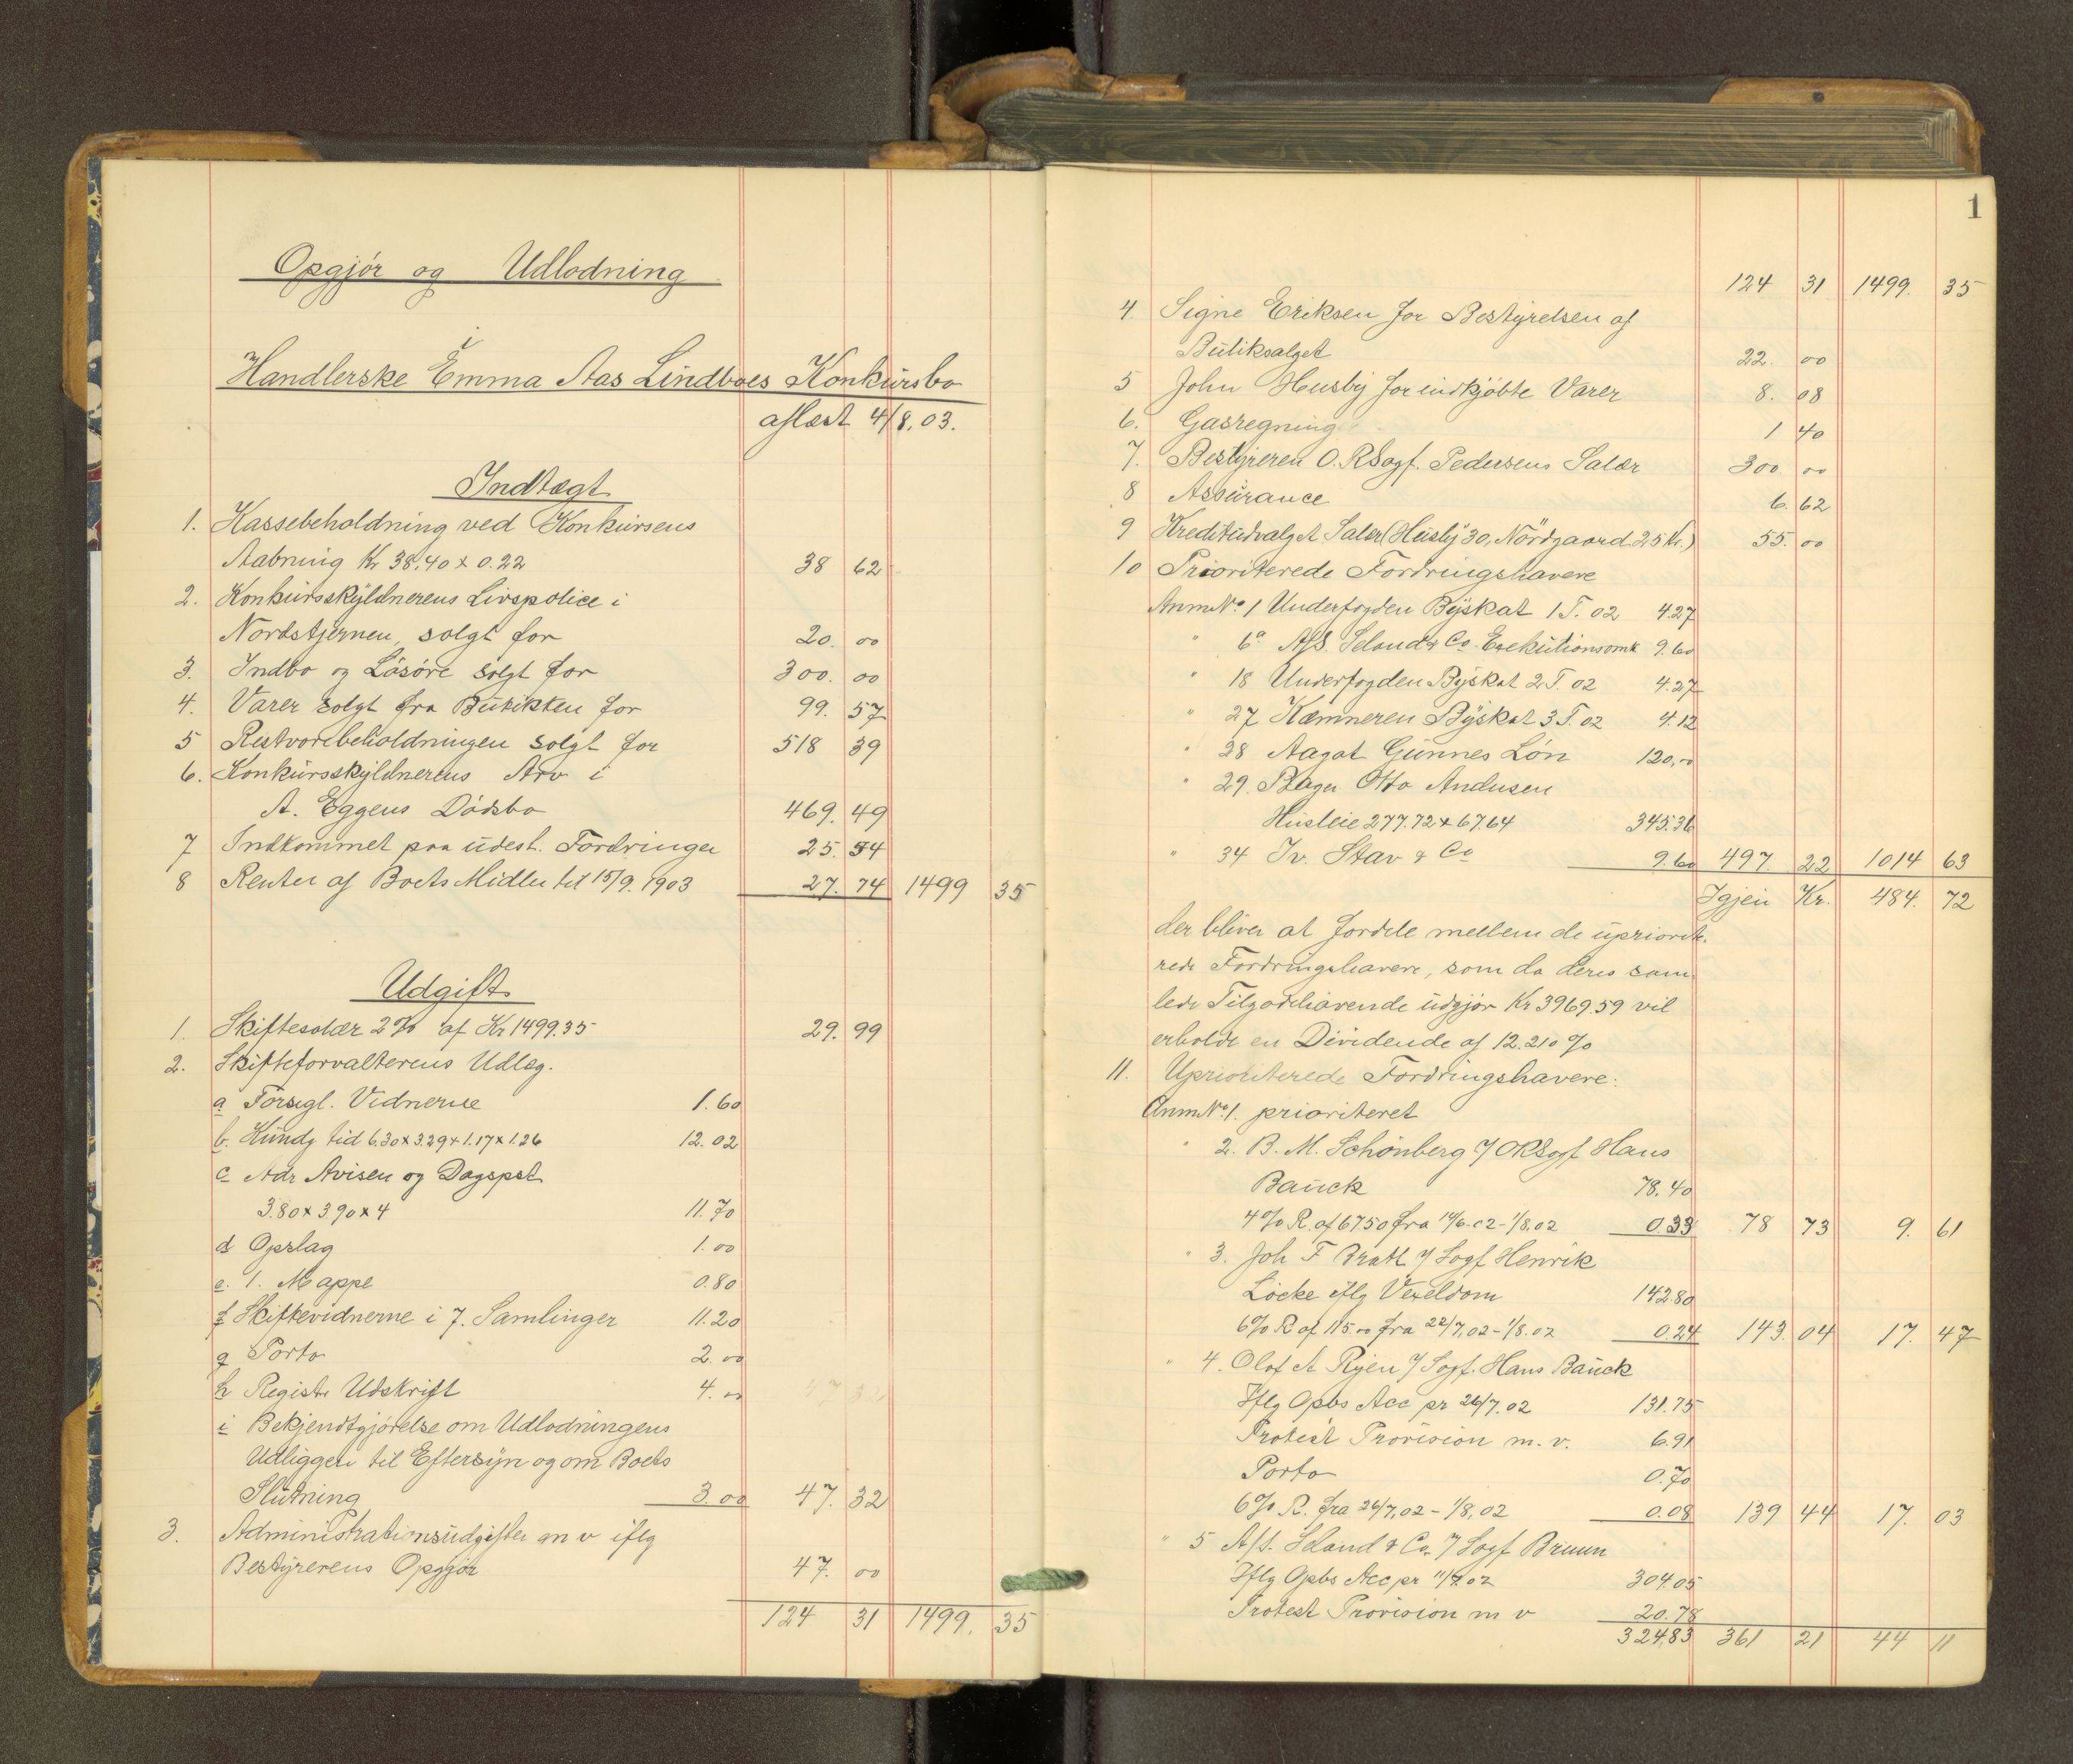 Opgjør og Udlodning
i
Handlerske Emma Aas Lindboes Konkursbo
aflæst 4/8.03.
Indtægt
1. Kassebeholdning ved Konkursens
Aabning Kr 38.40 x 0.22 38 62
2. Konkursskyldnerens Livspolice i
Nordstjernen, solgt for 20. 00
3. Indbo og Løsøre solgt for 300. 00
4. Varer solgt fra Butikken for 99. 57
5 Restvarebeholdningen solgt for 518 39
6. Konkursskyldnerens Arv i
A. Eggens Dødsbo 469. 49
7 Indkommet paa udest. Fordringer 25. 54
8 Renter af Boets Midler til 15/9. 1903 27. 74 1499 35
Udgift
1. Skiftesalær 2% af Kr 1499.35 29. 99
2. Skifteforvalterens Udlæg.
a Forsegl. Vidnerne 1.60
b. Kundg tid 6.30 x 3.29 x 1.17 x 1.26 12.02
c Adr Avisen og Dagspst
3.80 x 3.90 x 4 11.70
d Opslag 1.00
e. 1. Mappe 0.80
f Skiftevidnerne i 7. Samlinger 11.20
g Porto 2.00
h Registr Udskrift 4.00
i Bekjendtgjørelse om Udlodningens
Udliggen til Eftersyn og om Boets
Slutning 3.00 47. 32
3. Administrationsudgifter m v iflg
Bestyrerens Opgjør 47. 00
124 31 1499. 35
1
124 31 1499. 35
4 Signe Eriksen for Bestyrelsen af
Butiksalget 22. 00
5 John Husby for indkjøbte Varer 8. 08
6. Gasregning 1 40
7. Bestyreren O.RSagf. Pedersens Salær 300 00
8 Assurance 6. 62
9 Kreditudvalget Salær (Husby 30, Nördgaard 25 Kr.) 55. 00
10 Prioriterede Fordringshavere
Anm No. 1 Underfogden Byskat 1 T. 02 4.27
" 6a A/S. Seland & Co. Exekutionsomk 9.60
" 18 Underfogden Byskat 2 T. 02 4.27
" 27 Kæmneren Byskat 3 T. 02 4.12
" 28 Aagot Gunnes Løn 120,00
" 29. Bager Otto Andersen
Husleie 277.72 x 67.64 345.36
" 34 Iv. Stav & Co 9.60 497. 22 1014 63
Igjen Kr. 484. 72
der bliver at fordele mellem de upriorite-
rede Fordringshavere, som da deres sam-
lede Tilgodehavende udgjør Kr 3969.59 vil
erholde en Dividende af 12.210 %
11. Uprioriterede Fordringshavere:
Anm No. 1. prioriteret
" 2. B. M. Schønberg v/ ORSagf Hans
Bauck 78.40
4% R. af 6750 fra 14/6-02 - 1/8.02 0.33 78 73 9. 61
" 3. Joh F Bratt v/ Sagf Henrik
Løcke iflg Vexeldom 142.80
6% R af 115.00 fra 22/7,02 - 1/8.02 0.24 143. 04 17. 47
" 4. Olof A Ryen v/ Sagf. Hans Bauck
Iflg Opbs Acc pr 26/7.02 131.75
Protest Provision m. v. 6.91
Porto 0.70
6% R. fra 26/7,02 - 1/8,02 0.08 139 44 17. 03
" 5 A/S. Seland & Co. v/ Sagf Bruun
Iflg Opbs Acc pr 11/7.02 304.05
Protest Provision m v 20.78
324.83 361 21 44 11